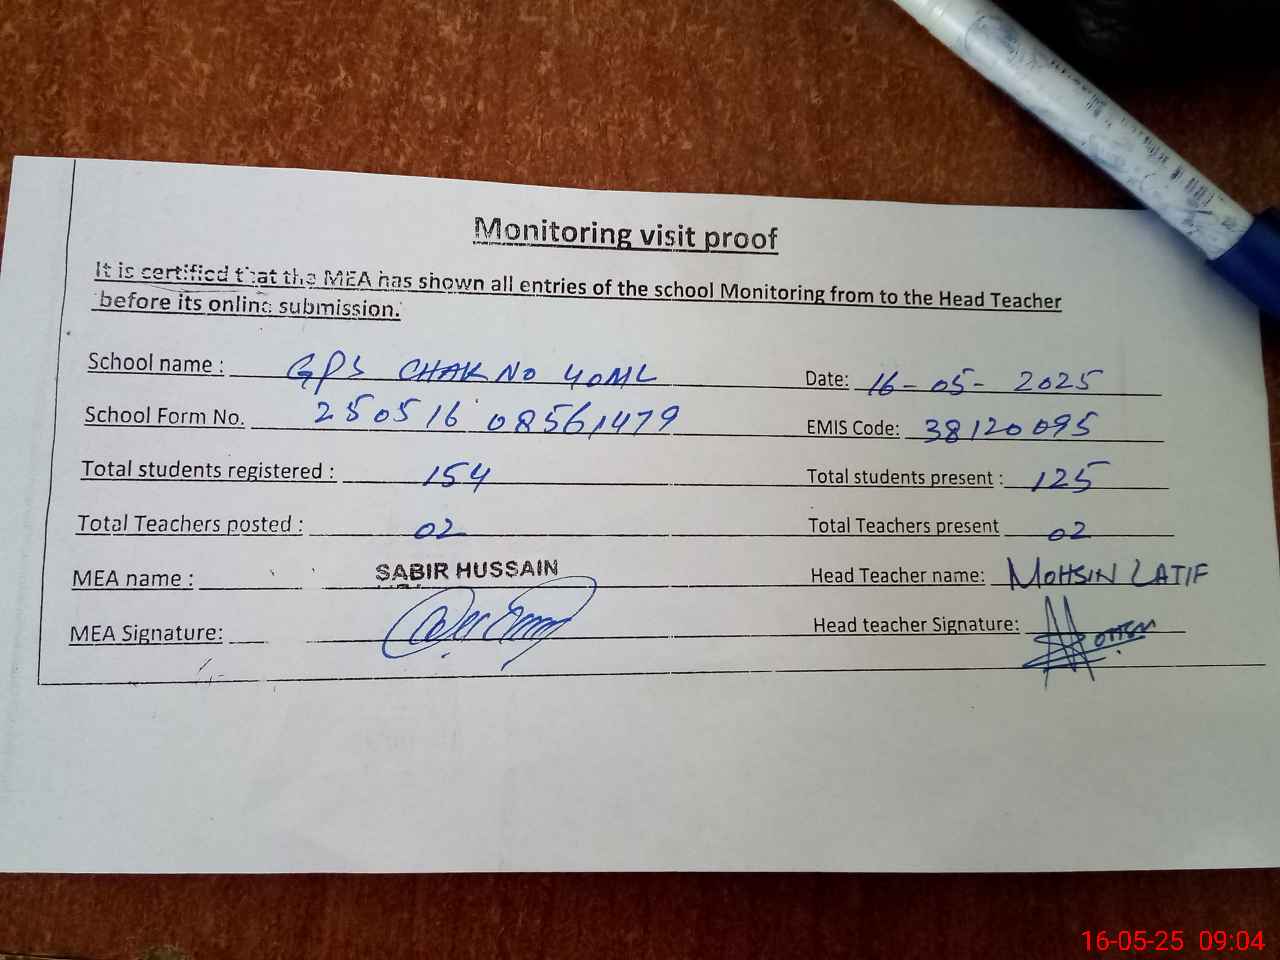 Monitoring visit proof
It is certified that the MEA has shown all entries of the school Monitoring from to the Head Teacher
before its online submission.
School name : GPS CHAK NO 40ML Date: 16-05-2025
School Form No. 250516 08561479 EMIS Code: 38120095
Total students registered : 154 Total students present : 125
Total Teachers posted : 02 Total Teachers present 02
MEA name : SABIR HUSSAIN Head Teacher name: MOHSIN LATIF
MEA Signature: Head teacher Signature:
16-05-25 09:04